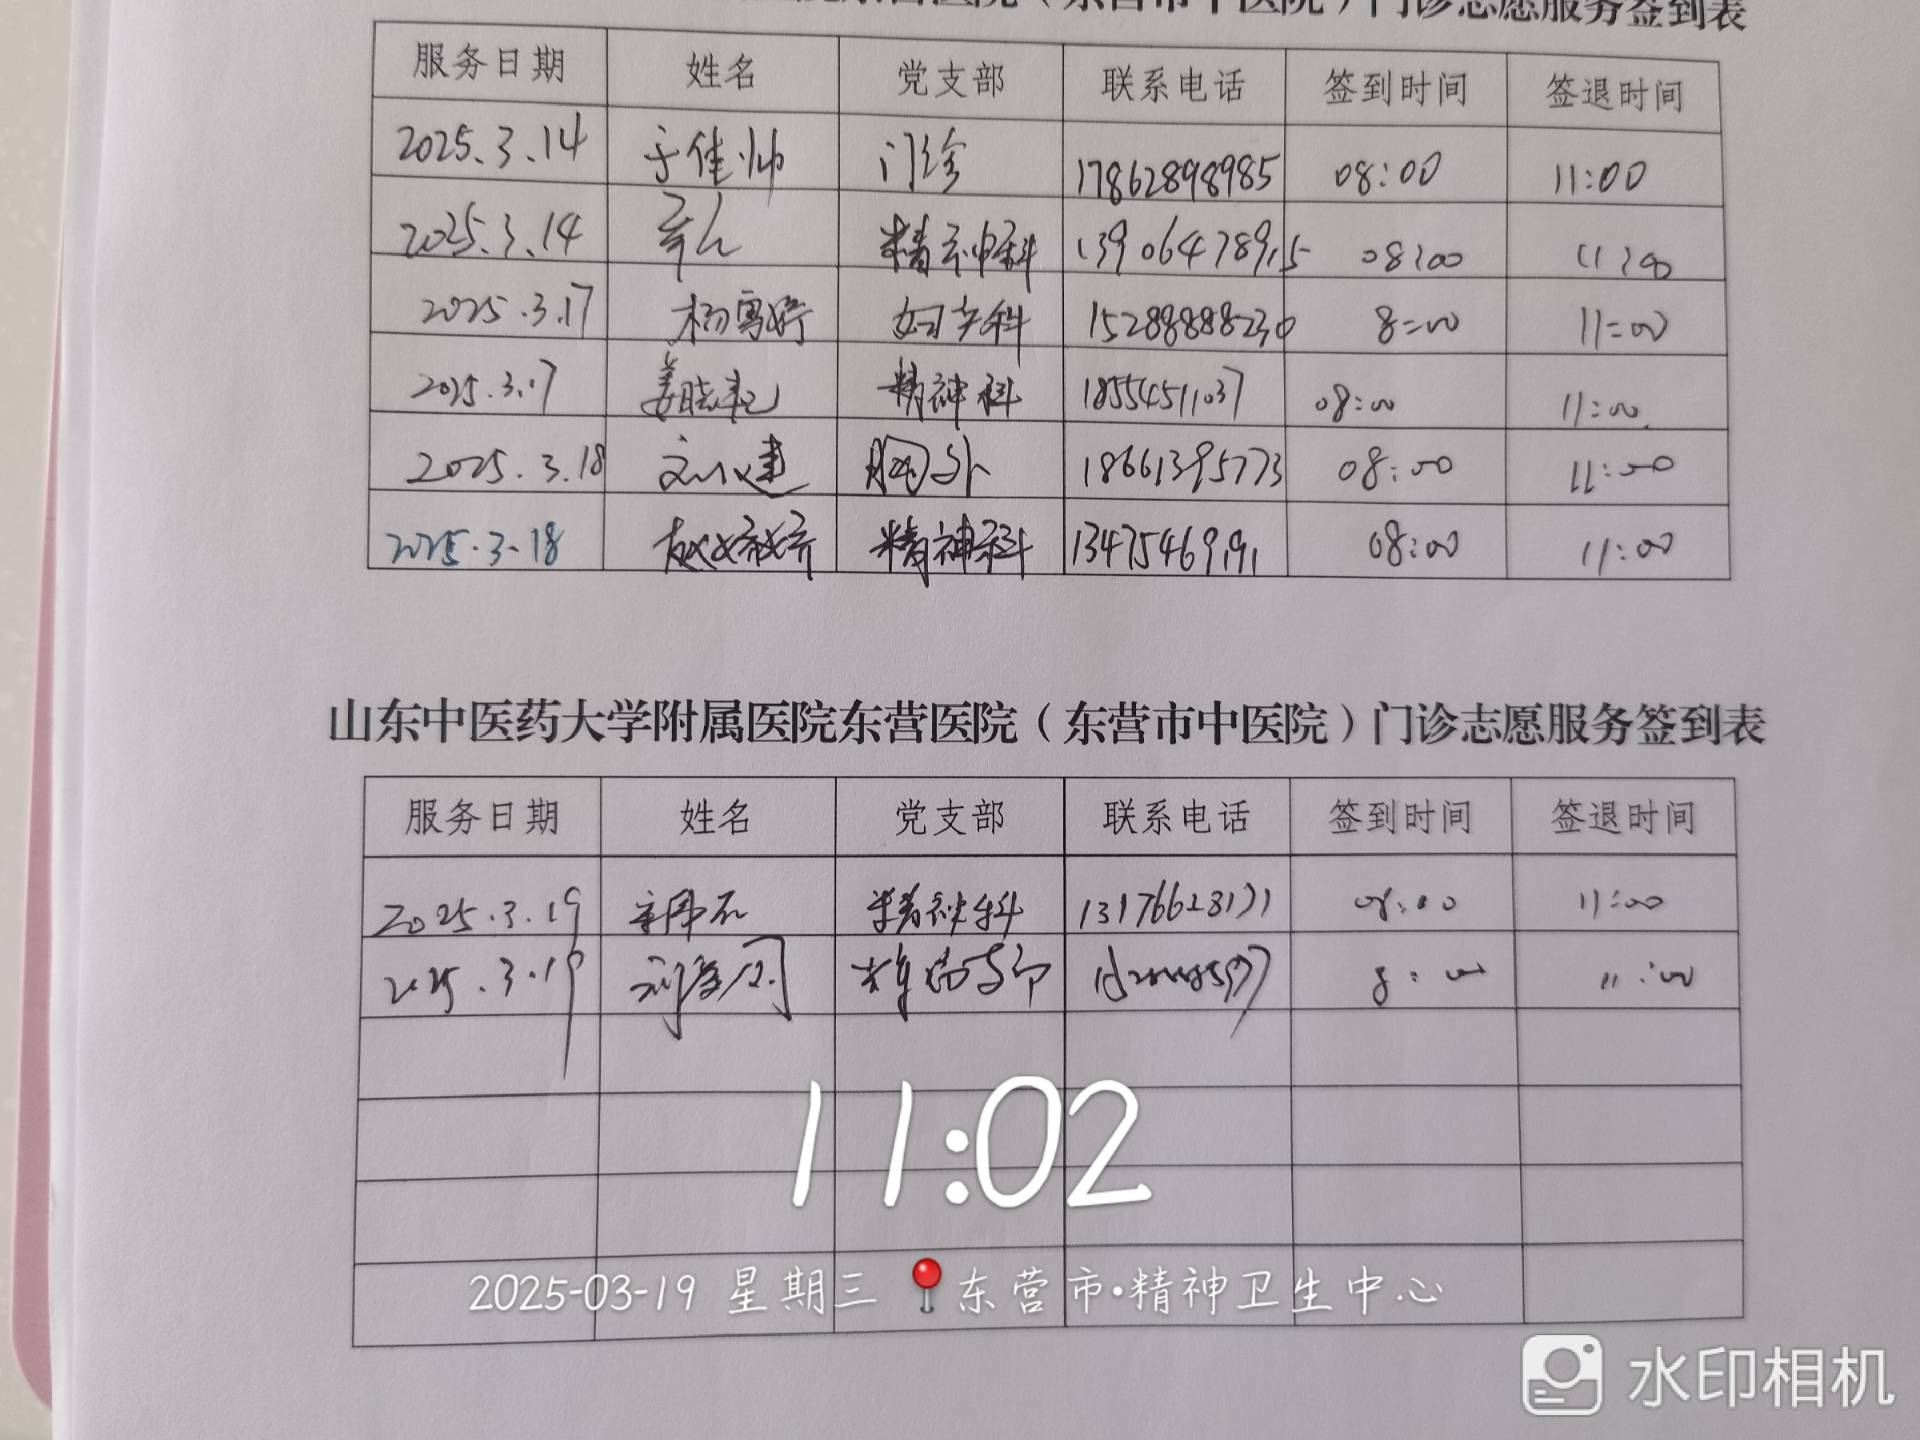 东营医院（东营市中医院）门诊志愿服务签到表
服务日期 姓名 党支部 联系电话 签到时间 签退时间
2025.3.14 于佳帅 门诊 17862898985 08:00 11:00
2025.3.14 精神科 13906478915 08:00 11:00
2025.3.17 杨雪婷 妇产科 15288888230 8:00 11:00
2025.3.17 姜晓 精神科 18554511037 08:00 11:00
2025.3.18 刘建 胸外 18661395773 08:00 11:00
2025.3.18 赵婷婷 精神科 13475469191 08:00 11:00
山东中医药大学附属医院东营医院（东营市中医院）门诊志愿服务签到表
服务日期 姓名 党支部 联系电话 签到时间 签退时间
2025.3.19 精神科 13176628171 08:00 11:00
2025.3.19 支部 8:00 11:00
11:02
2025-03-19 星期三 东营市·精神卫生中心
水印相机